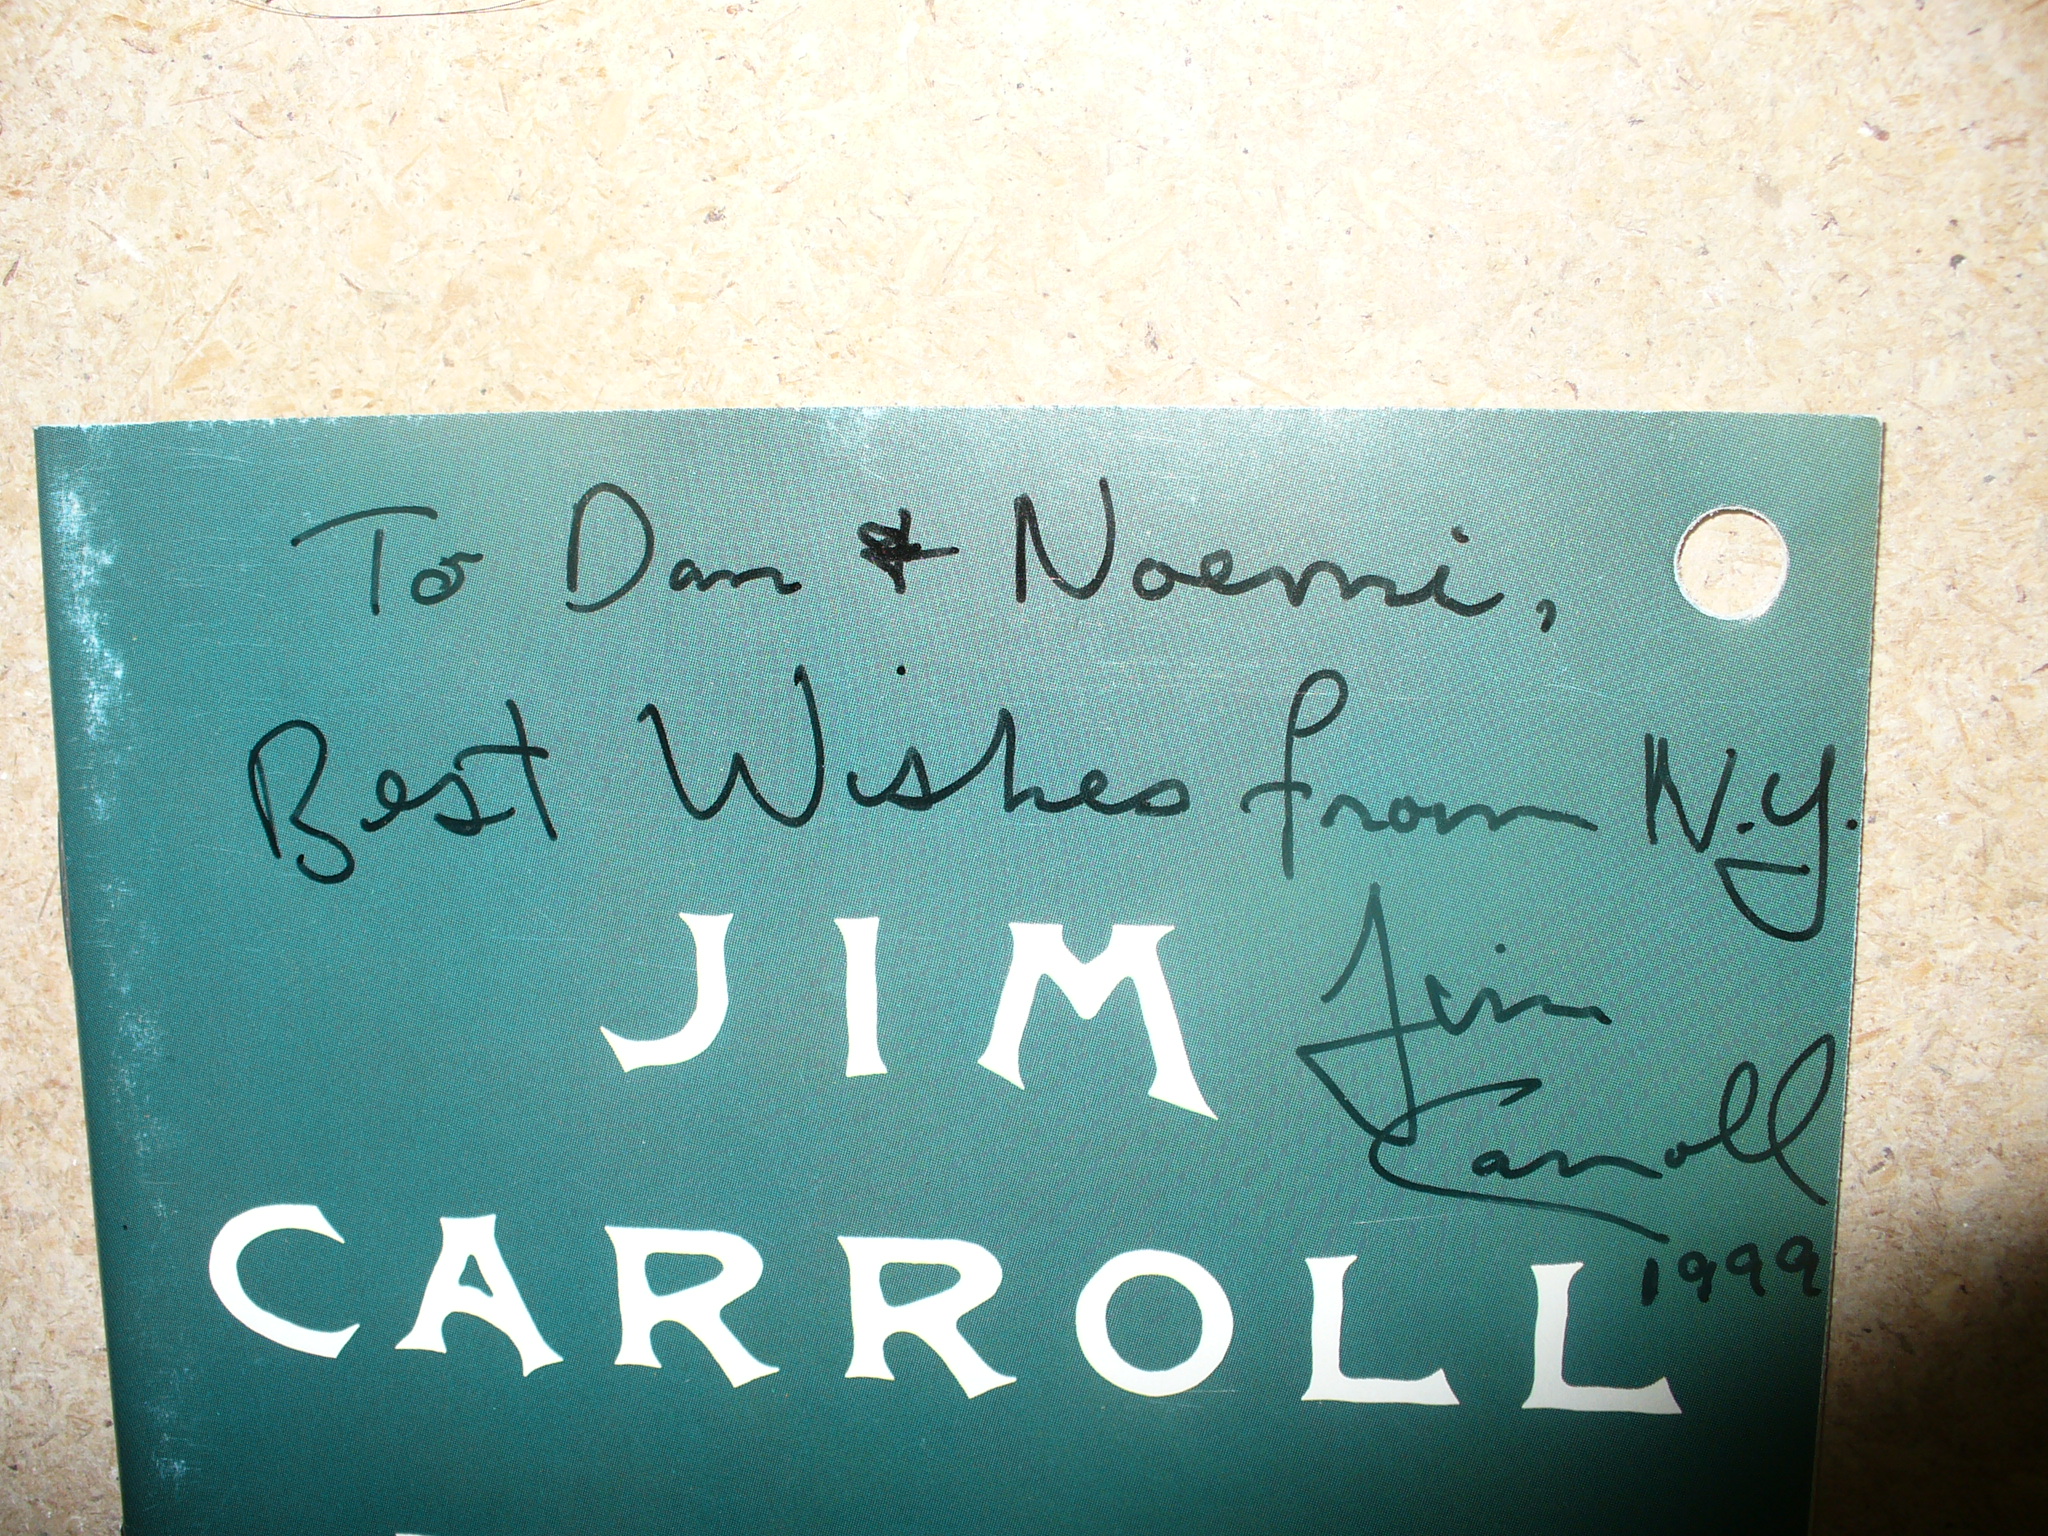 To Dan & Noemi,
Best Wishes from N.Y.
Jim
Carroll
1999
JIM
CARROLL